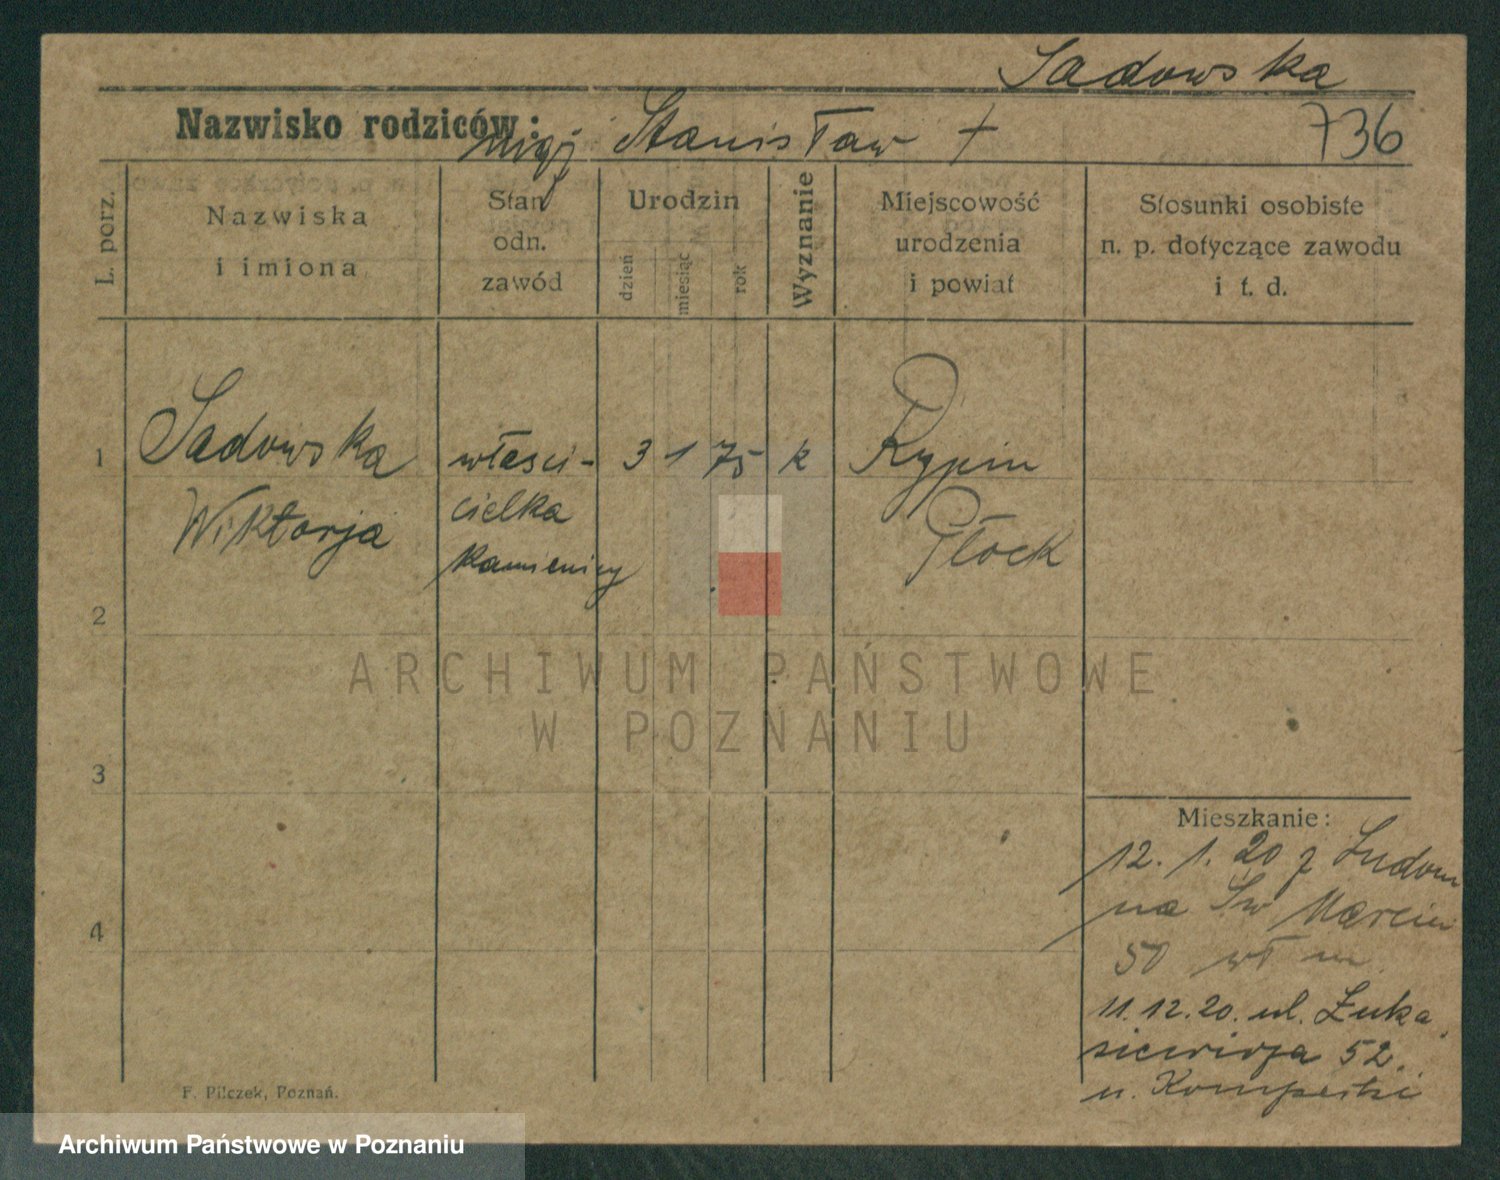 Sadowska
Nazwisko rodziców: mąż Stanisław +
736
L. porz.
Nazwiska
i imiona
Stan
odn.
zawód
Urodzin
dzień
miesiąc
rok
Wyznanie
Miejscowość
urodzenia
i powiat
Stosunki osobiste
n. p. dotyczące zawodu
i t. d.
1
Sadowska
Wiktorja
właści-
cielka
kamienicy
3 1 75 k
Rypin
Płock
2
3
4
ARCHIWUM PAŃSTWOWE
W POZNANIU
Mieszkanie:
12. 1. 20 z
na Św Marcin
50
11. 12. 20. ul. Łuka
siewicza 52.
u.
F. Pilczek, Poznań.
Archiwum Państwowe w Poznaniu